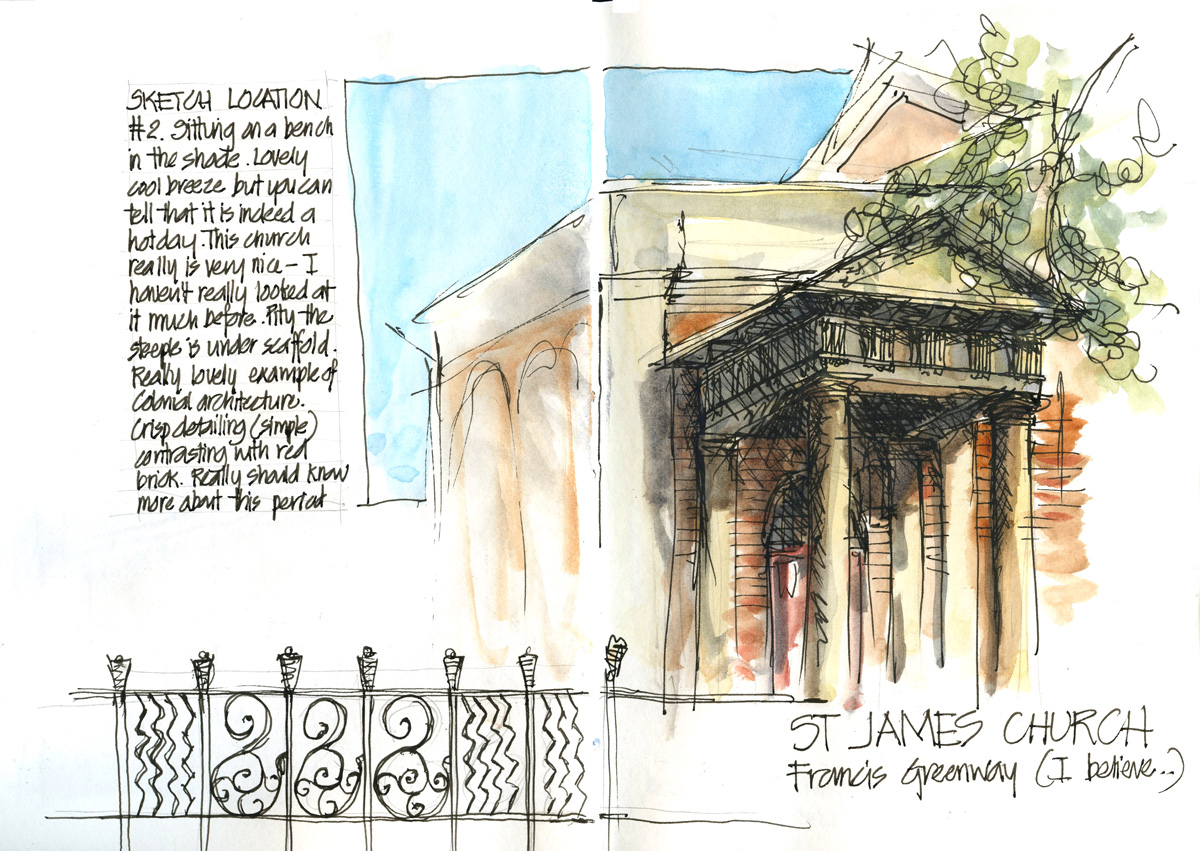 SKETCH LOCATION
#2. Sitting on a bench
in the shade. Lovely
cool breeze but you can
tell that it is indeed a
hot day. This church
really is very nice – I
haven't really looked at
it much before. Pity the
steeple is under scaffold.
Really lovely example of
Colonial architecture.
Crisp detailing (simple)
contrasting with red
brick. Really should know
more about this period
ST JAMES CHURCH
Francis Greenway (I believe...)